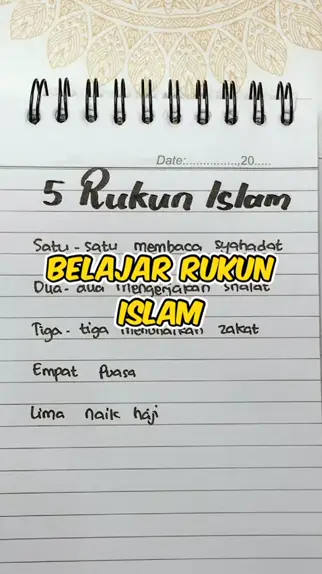 Date:................,20.....
5 Rukun Islam
Satu - satu membaca syahadat
BELAJAR RUKUN
Dua - dua mengerjakan shalat
ISLAM
Tiga - tiga menunaikan zakat
Empat Puasa
Lima naik haji